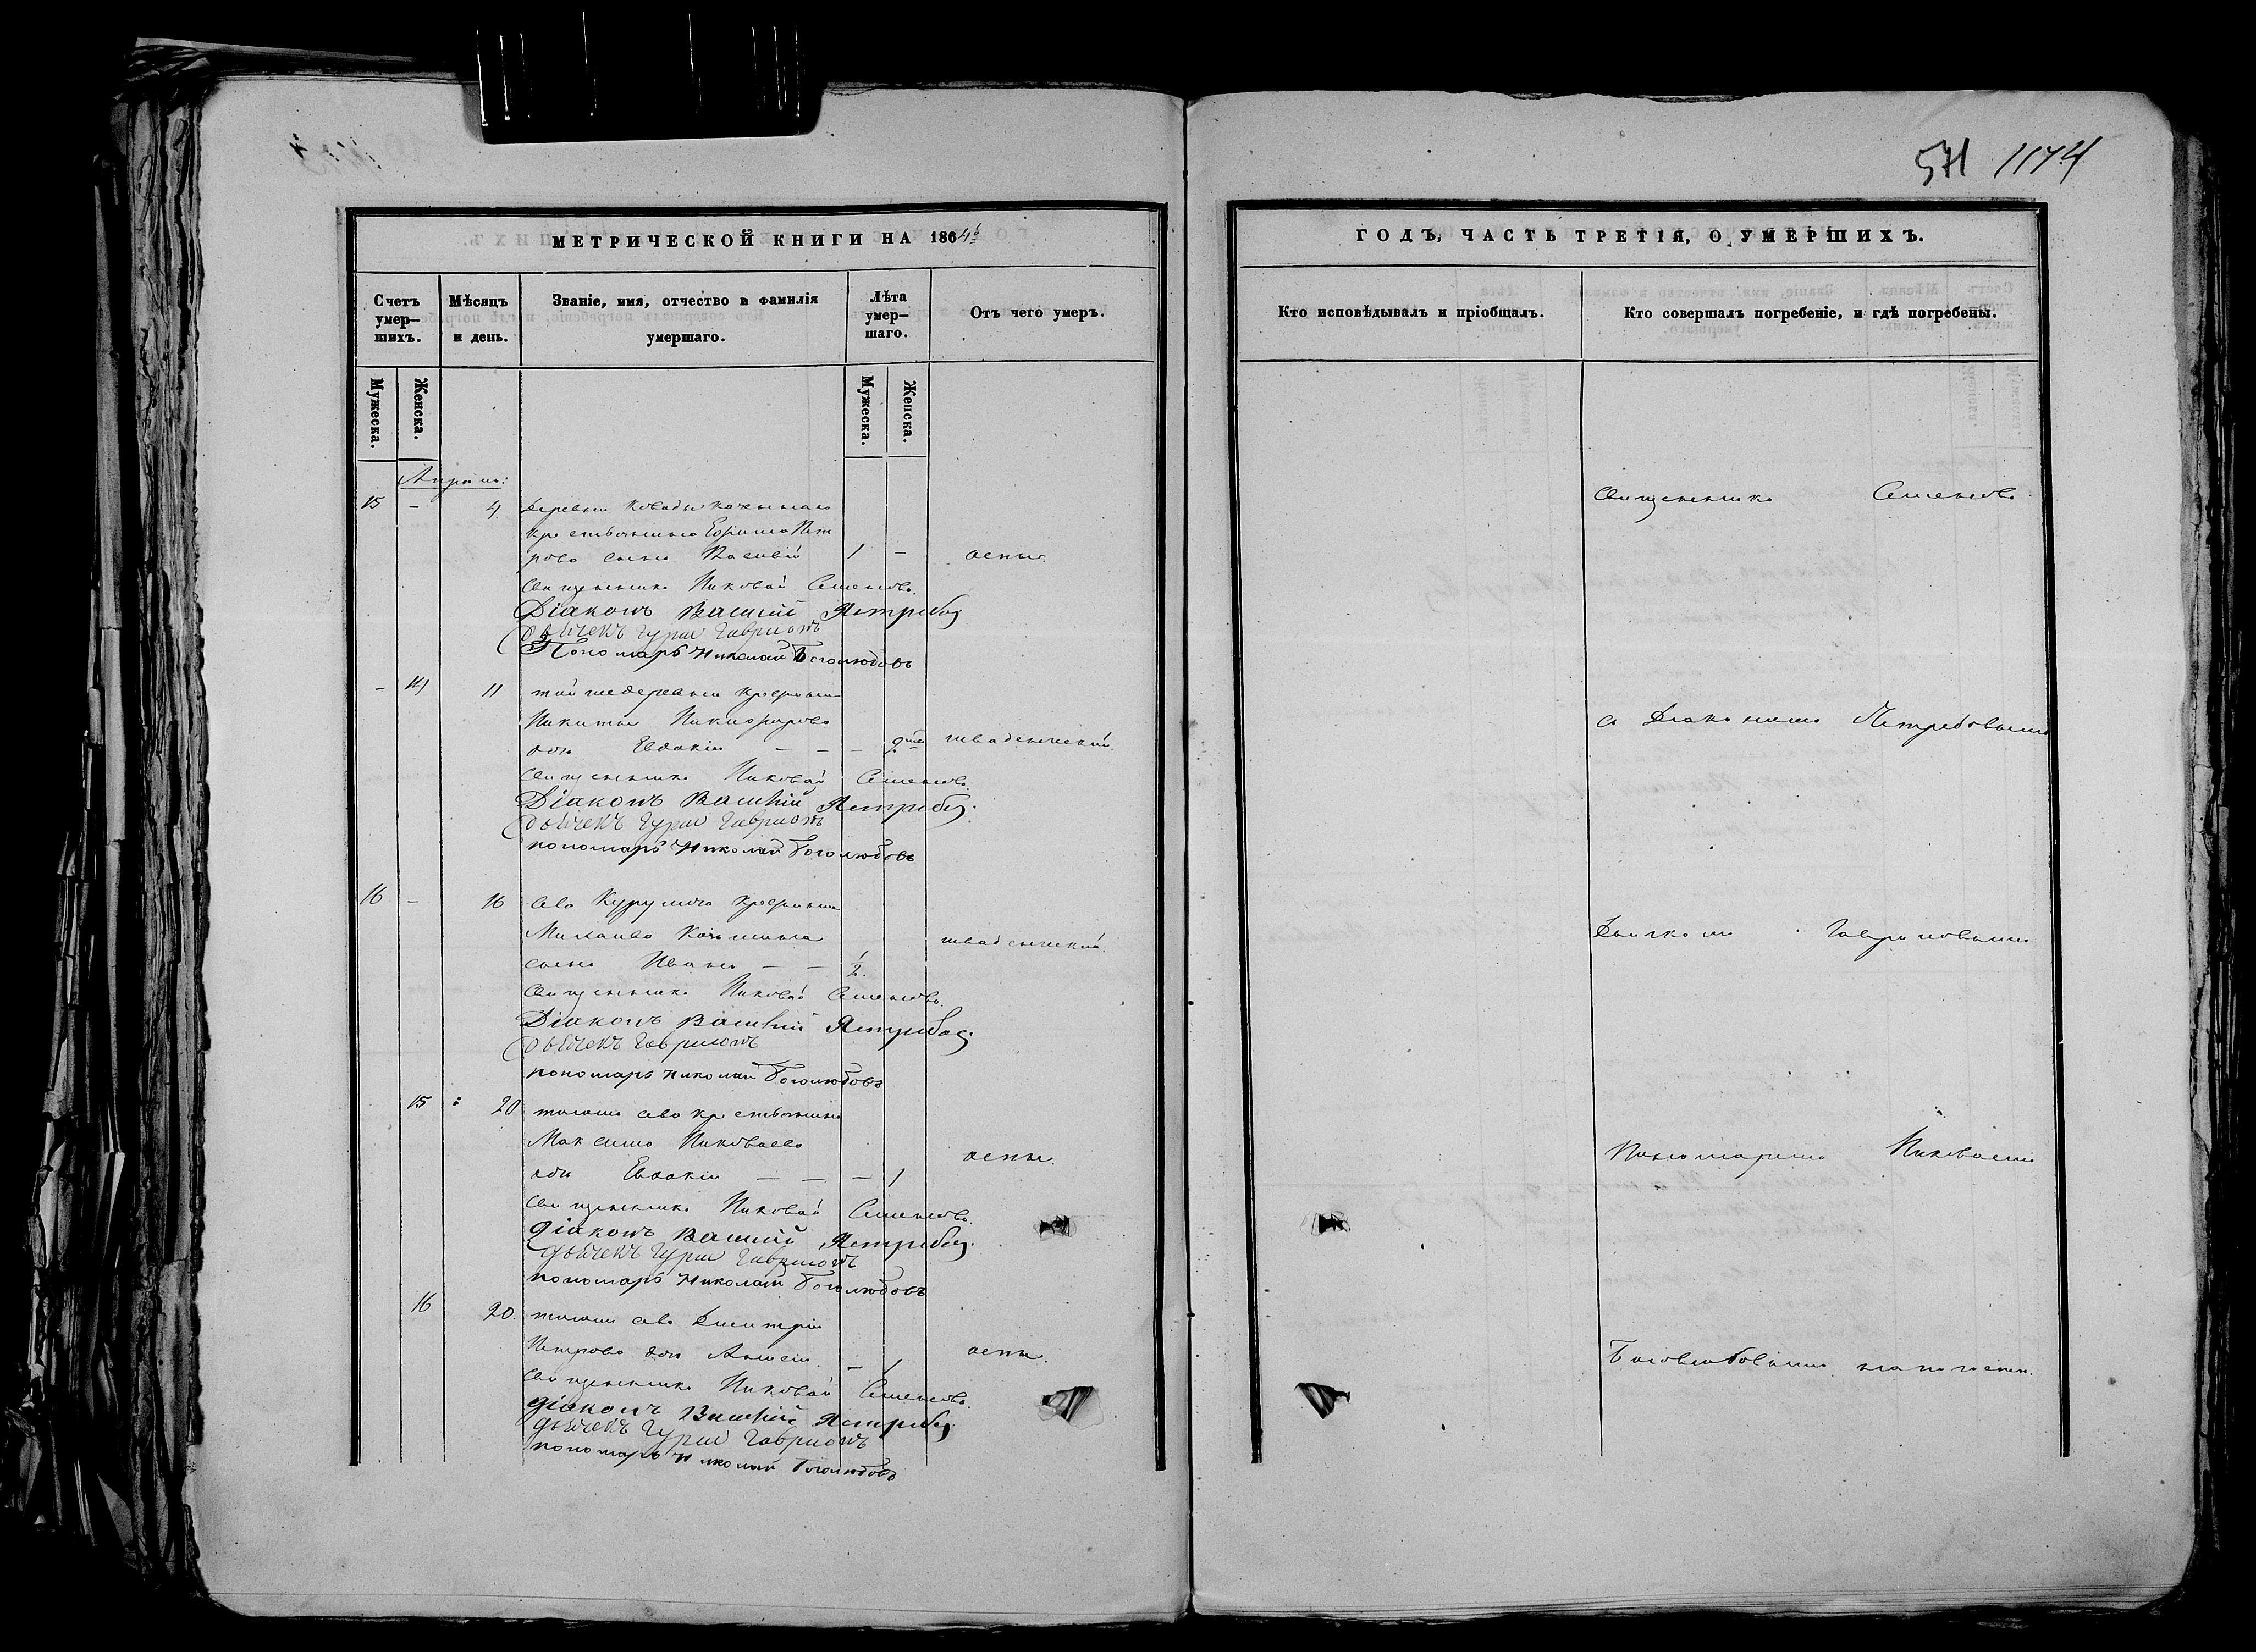 571 1174
МЕТРИЧЕСКОЙ КНИГИ НА 1864й
ГОДЪ, ЧАСТЬ ТРЕТІЯ, О УМЕРШИХЪ.
Счетъ умер–шихъ.
Мѣсяцъ и день.
Званіе, имя, отчество и фамилія умершаго.
Лѣта умер–шаго.
Отъ чего умеръ.
Кто исповѣдывалъ и пріобщалъ.
Кто совершалъ погребеніе, и гдѣ погребены.
Мужеска.
Женска.
Мужеска.
Женска.
15 – 4. деревни
крестьянина Ефима Пет
рова сынъ Василій 1 – оспы.
Священникъ Николай Семеновъ.
Діаконъ Василій Ястребов
дьячекъ Гурій Гавриловъ
Пономарь Николай Боголюбовъ
Священникъ Семеновъ
– 14 11 той же деревни крестьян
Никиты Никифорова
дочь Евдокія – – – младенческой.
Священникъ Николай Семеновъ.
Діаконъ Василій Ястребов.
дьячекъ Гурій Гавриловъ
пономарь Николай Боголюбовъ
съ Діакономъ Ястребовымъ
16 – 16 села крестьян
Михаила
сынъ Иванъ – – 1/2. младенческой.
Священникъ Николай Семеновъ.
Діаконъ Василій Ястребов.
дьячекъ Гавриловъ
пономарь Николай Боголюбовъ
Дьячкомъ Гавриловымъ
15 20 тогоже села крестьянина
Максима Николаева
дочь Евдокія – – – 1 оспы.
Священникъ Николай Семеновъ.
діаконъ Василій Ястребов.
дьячекъ Гурій Гавриловъ
пономарь Николай Боголюбовъ
Пономаремъ Николаемъ
16 20. тогоже села Димитрія
Петрова дочь – 1 оспы.
Священникъ Николай Семеновъ.
діаконъ Василій Ястребов.
дьячекъ Гурій Гавриловъ
пономарь Николай Боголюбовъ
Боголюбовымъ на погостѣ.